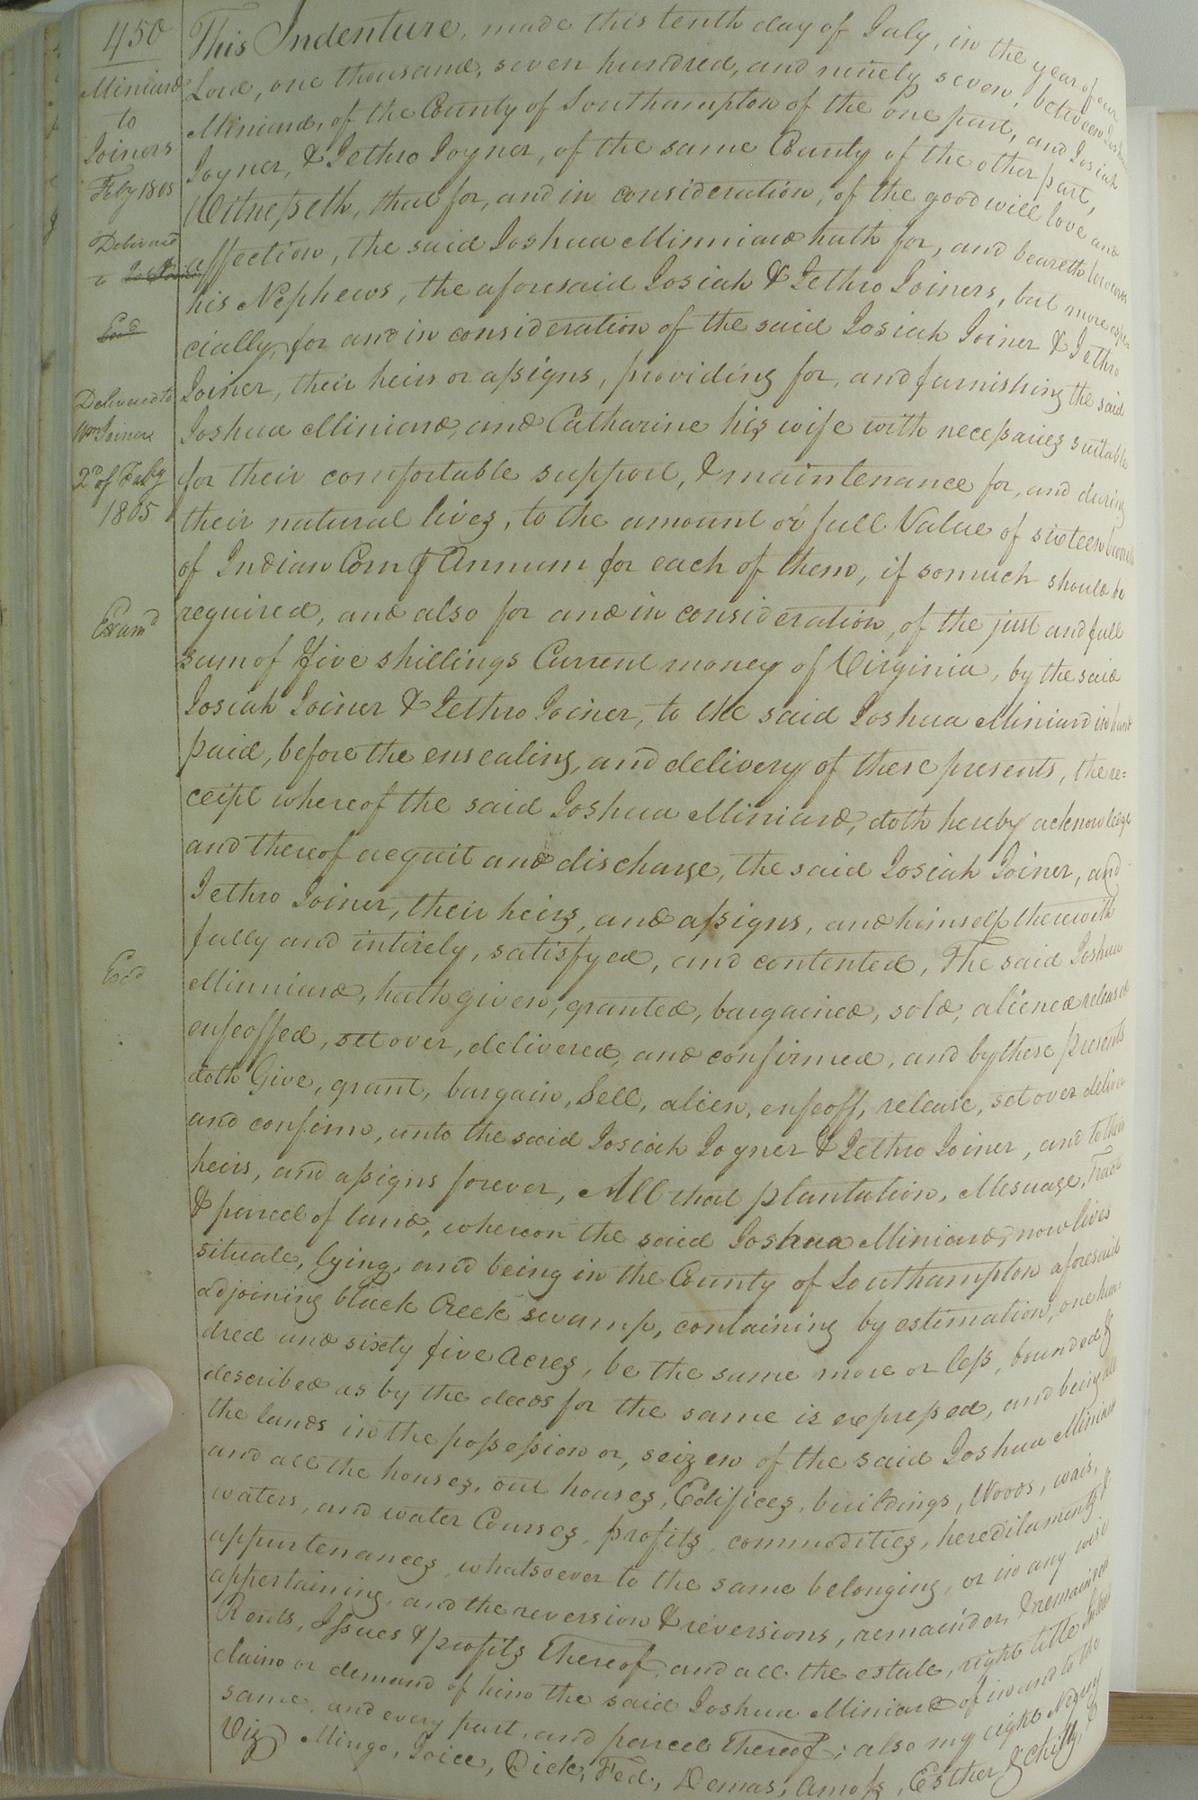 450
Miniard
to
Joiners
Feby 1805
Delivered
to
End
Delivered to
Wm Joiner
2d of Feby
1805
Examd
This Indenture, made this tenth day of July, in the year of our
Lord, one thousand, seven hundred, and ninety seven, between Joshua
Miniard, of the County of Southampton of the one part, and Josiah
Joyner, & Jethro Joyner, of the same County of the other part,
Witnesseth, that for, and in consideration, of the good will love and
affection, the said Joshua Minniard hath for, and beareth towards
his Nephews, the aforesaid Josiah & Jethro Joiners, but more espe
cially, for and in consideration of the said Josiah Joiner & Jethro
Joiner, their heirs or assigns, providing for, and furnishing the said
Joshua Miniard, and Catharine his wife with necessaries suitable
for their comfortable support, & maintenance for, and during
their natural lives, to the amount or full Value of sixteen barrels
of Indian Corn Annum for each of them, if so much should be
required, and also for and in consideration, of the just and full
sum of five shillings Current money of Virginia, by the said
Josiah Joiner & Jethro Joiner, to the said Joshua Miniard in hand
paid, before the ensealing, and delivery of these presents, the re=
ceipt whereof the said Joshua Miniard, doth hereby acknowledge
and thereof acquit and discharge, the said Josiah Joiner, and
Jethro Joiner, their heirs, and assigns, and himself therewith
fully and intirely, satisfyed, and contented, The said Joshua
Minniard, hath given, granted, bargained, sold, aliened released
enfeoffed, set over, delivered, and confirmed, and by these presents
doth Give, grant, bargain, Sell, alien, enfeoff, release, set over deliver
and confirm, unto the said Josiah Joyner & Jethro Joiner, and to their
heirs, and assigns forever, All that plantation, Mesuage, Tract
& parcel of land, whereon the said Joshua Miniard, now lives
situate, lying, and being in the County of Southampton aforesaid
adjoining black Creek swamp, containing by estimation, one hun
dred and sixty five Acres, be the same more or less, bounded &
described as by the deeds for the same is expressed, and being all
the lands in the possession or, seizen of the said Joshua Miniard
and all the houses, out houses, Edifices, buildings, Woods, wais,
waters, and water Courses, profits, commodities, hereditaments &
appurtenances, whatsoever to the same belonging, or in any wise
appertaining, and the reversion & reversions, remainder, & remainders
Rents, Issues & profits thereof, and all the estate, right title
claim or demand of him the said Joshua Miniard of in and to the
same, and every part, and parcel thereof; also my eight Negroes
Viz, Mingo, Joice, Dick, Fed, Demas, Amoss, Esther &